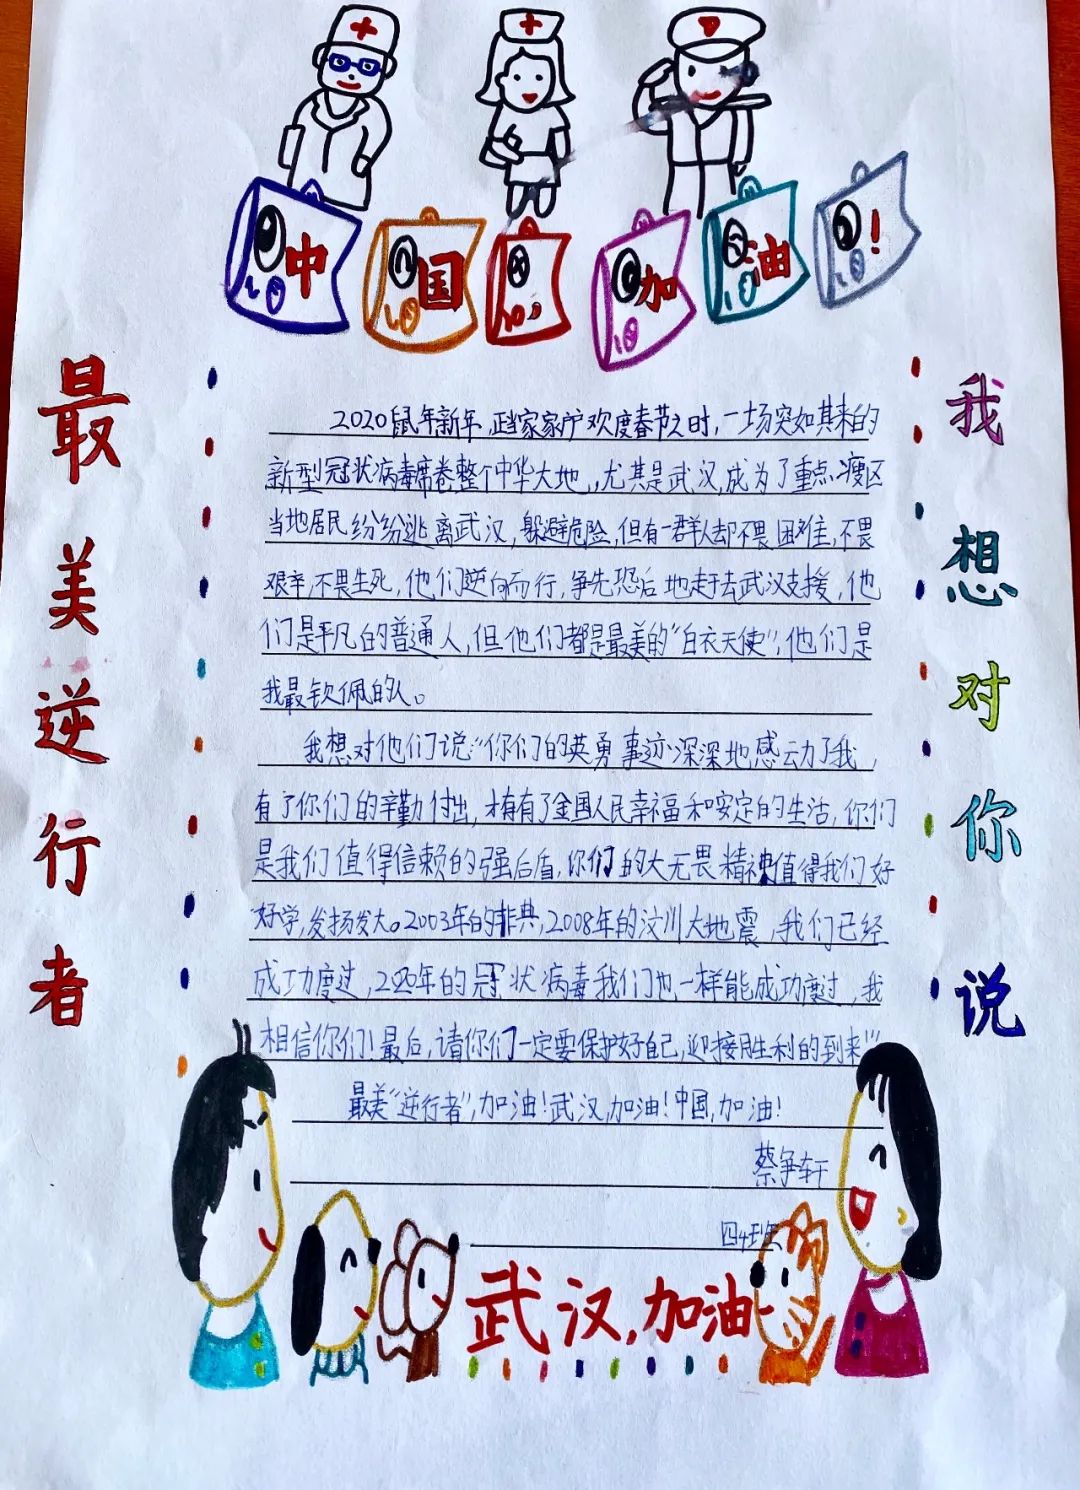 中国,加油!
最美逆行者
我想对你说
2020鼠年新年,正当家家户户欢度春节之时,一场突如其来的
新型冠状病毒席卷整个中华大地,尤其是武汉,成为了重点疫区
当地居民纷纷逃离武汉,躲避危险,但有一群人却不畏困难,不畏
艰辛,不畏生死,他们逆向而行,争先恐后地赶去武汉支援,他
们是平凡的普通人,但他们都是最美的“白衣天使”,他们是
我最钦佩的人。
我想对他们说:“你们的英勇事迹深深地感动了我,
有了你们的辛勤付出,才有了全国人民幸福和安定的生活,你们
是我们值得信赖的强后盾,你们的大无畏精神值得我们好
好学,发扬发大。2003年的非典,2008年的汶川大地震,我们已经
成功度过,2020年的冠状病毒我们也一样能成功度过,我
相信你们!最后,请你们一定要保护好自己,迎接胜利的到来!”
最美“逆行者”,加油!武汉,加油!中国,加油!
蔡争轩
四4班
武汉,加油